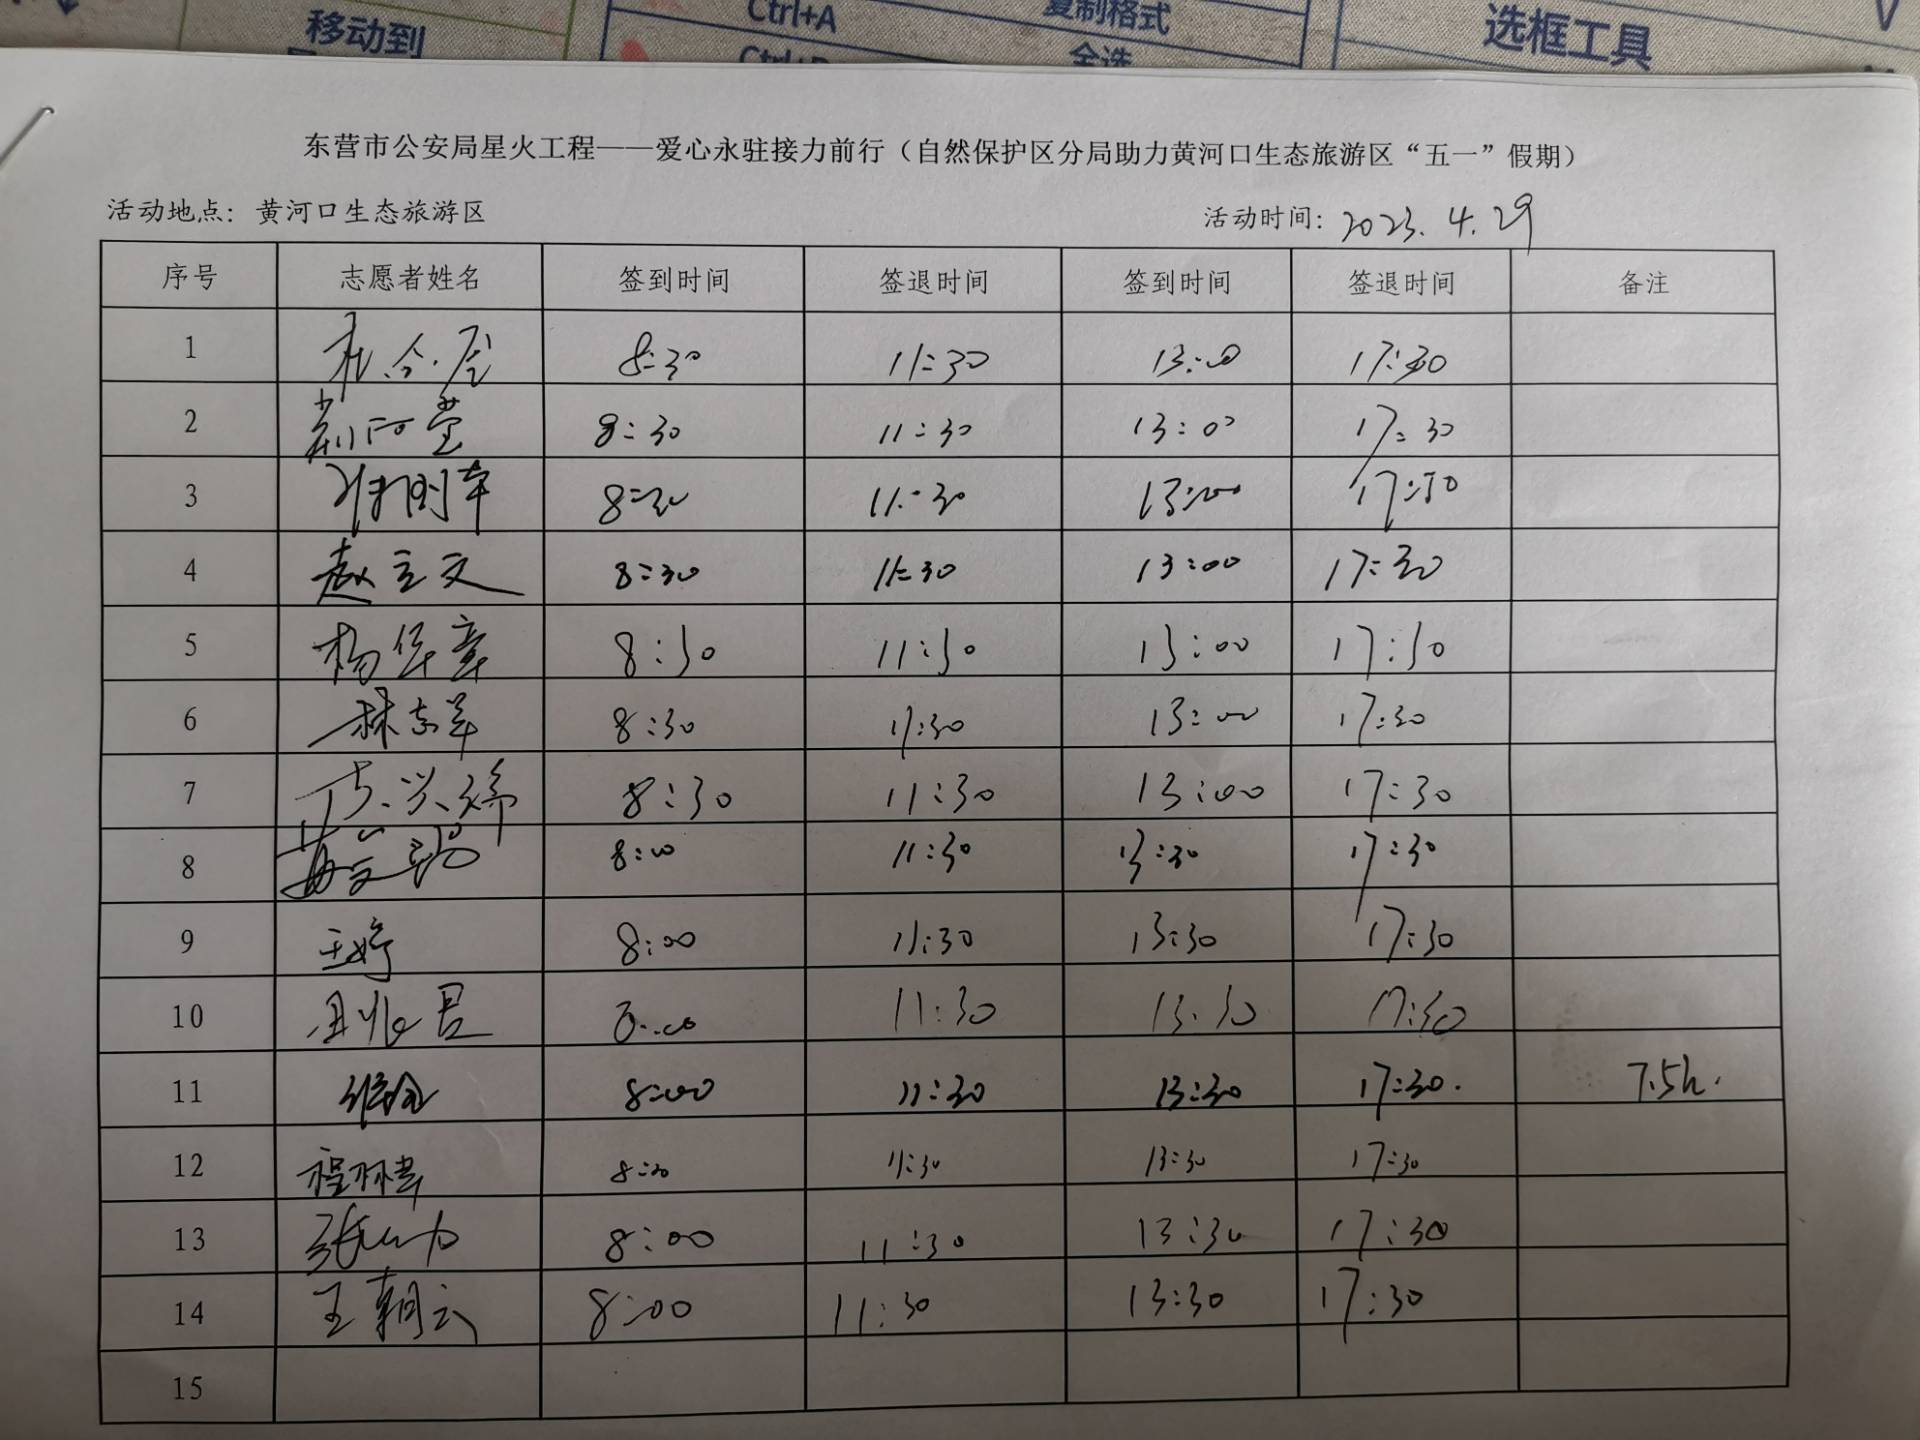 移动到
Ctrl+A
复制格式
全选
选框工具
东营市公安局星火工程——爱心永驻接力前行（自然保护区分局助力黄河口生态旅游区“五一”假期）
活动地点：黄河口生态旅游区 活动时间：2023.4.29
序号 志愿者姓名 签到时间 签退时间 签到时间 签退时间 备注
1 8:30 11:30 13:00 17:30
2 8:30 11:30 13:00 17:30
3 8:30 11:30 13:00 17:30
4 赵立文 8:30 11:30 13:00 17:30
5 杨华章 8:30 11:30 13:00 17:30
6 林志军 8:30 11:30 13:00 17:30
7 8:30 11:30 13:00 17:30
8 8:00 11:30 13:30 17:30
9 王婷 8:00 11:30 13:30 17:30
10 8:00 11:30 13:30 17:30
11 8:00 11:30 13:30 17:30. 7.5h.
12 11:30 13:30 17:30
13 8:00 11:30 13:30 17:30
14 王朝云 8:00 11:30 13:30 17:30
15